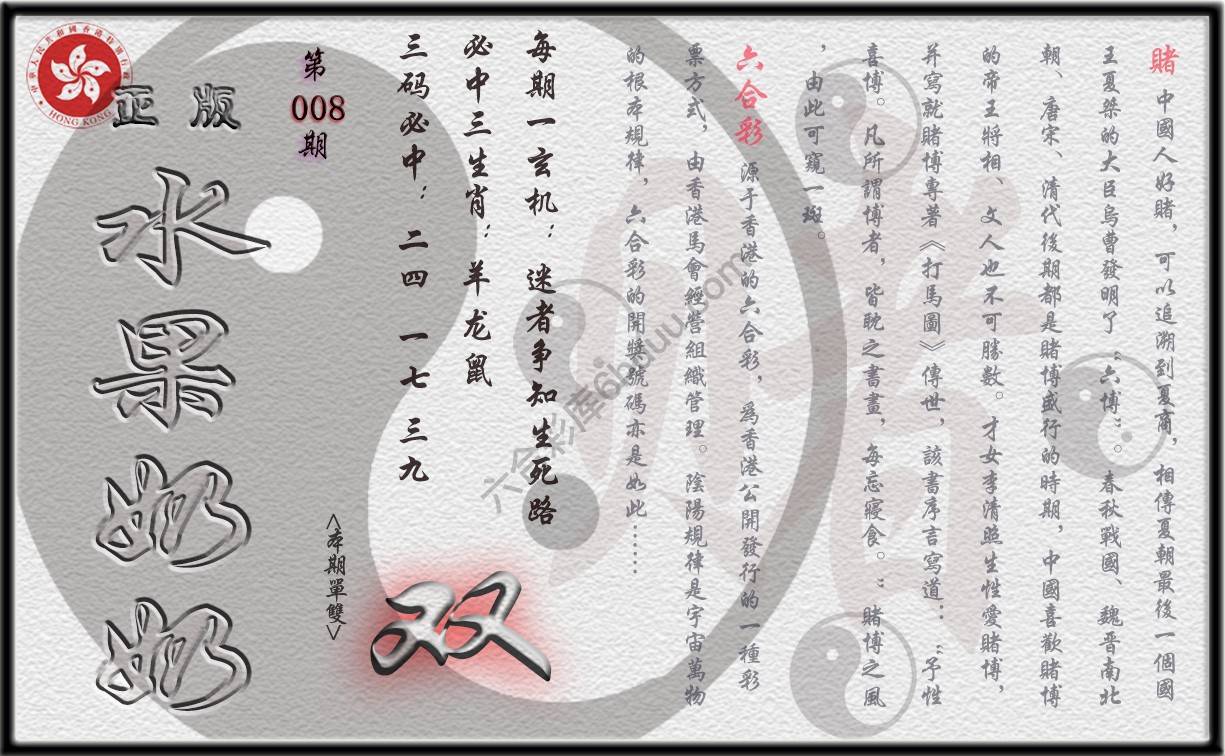 賭 中國人好賭，可以追溯到夏商，相傳夏朝最後一個國
王夏桀的大臣烏曹發明了“六博”。春秋戰國、魏晋南北
朝、唐宋、清代後期都是賭博盛行的時期，中國喜歡賭博
的帝王將相、文人也不可勝數。才女李清照生性愛賭博，
并寫就賭博專著《打馬圖》傳世，該書序言寫道：“予性
喜博。凡所謂博者，皆耽之書畫，每忘寢食。”賭博之風
，由此可窺一斑。
六合彩 源于香港的六合彩，爲香港公開發行的一種彩
票方式，由香港馬會經營組織管理。陰陽規律是宇宙萬物
的根本規律，六合彩的開獎號碼亦是如此……
每期一玄机：迷者争知生死路
必中三生肖：羊龙鼠
三码必中：二四 一七 三九
第
008
期
<本期單雙>
双
正版
水果奶奶
中華人民共和國香港特別行政區
HONG KONG
六合彩库6huuu.com